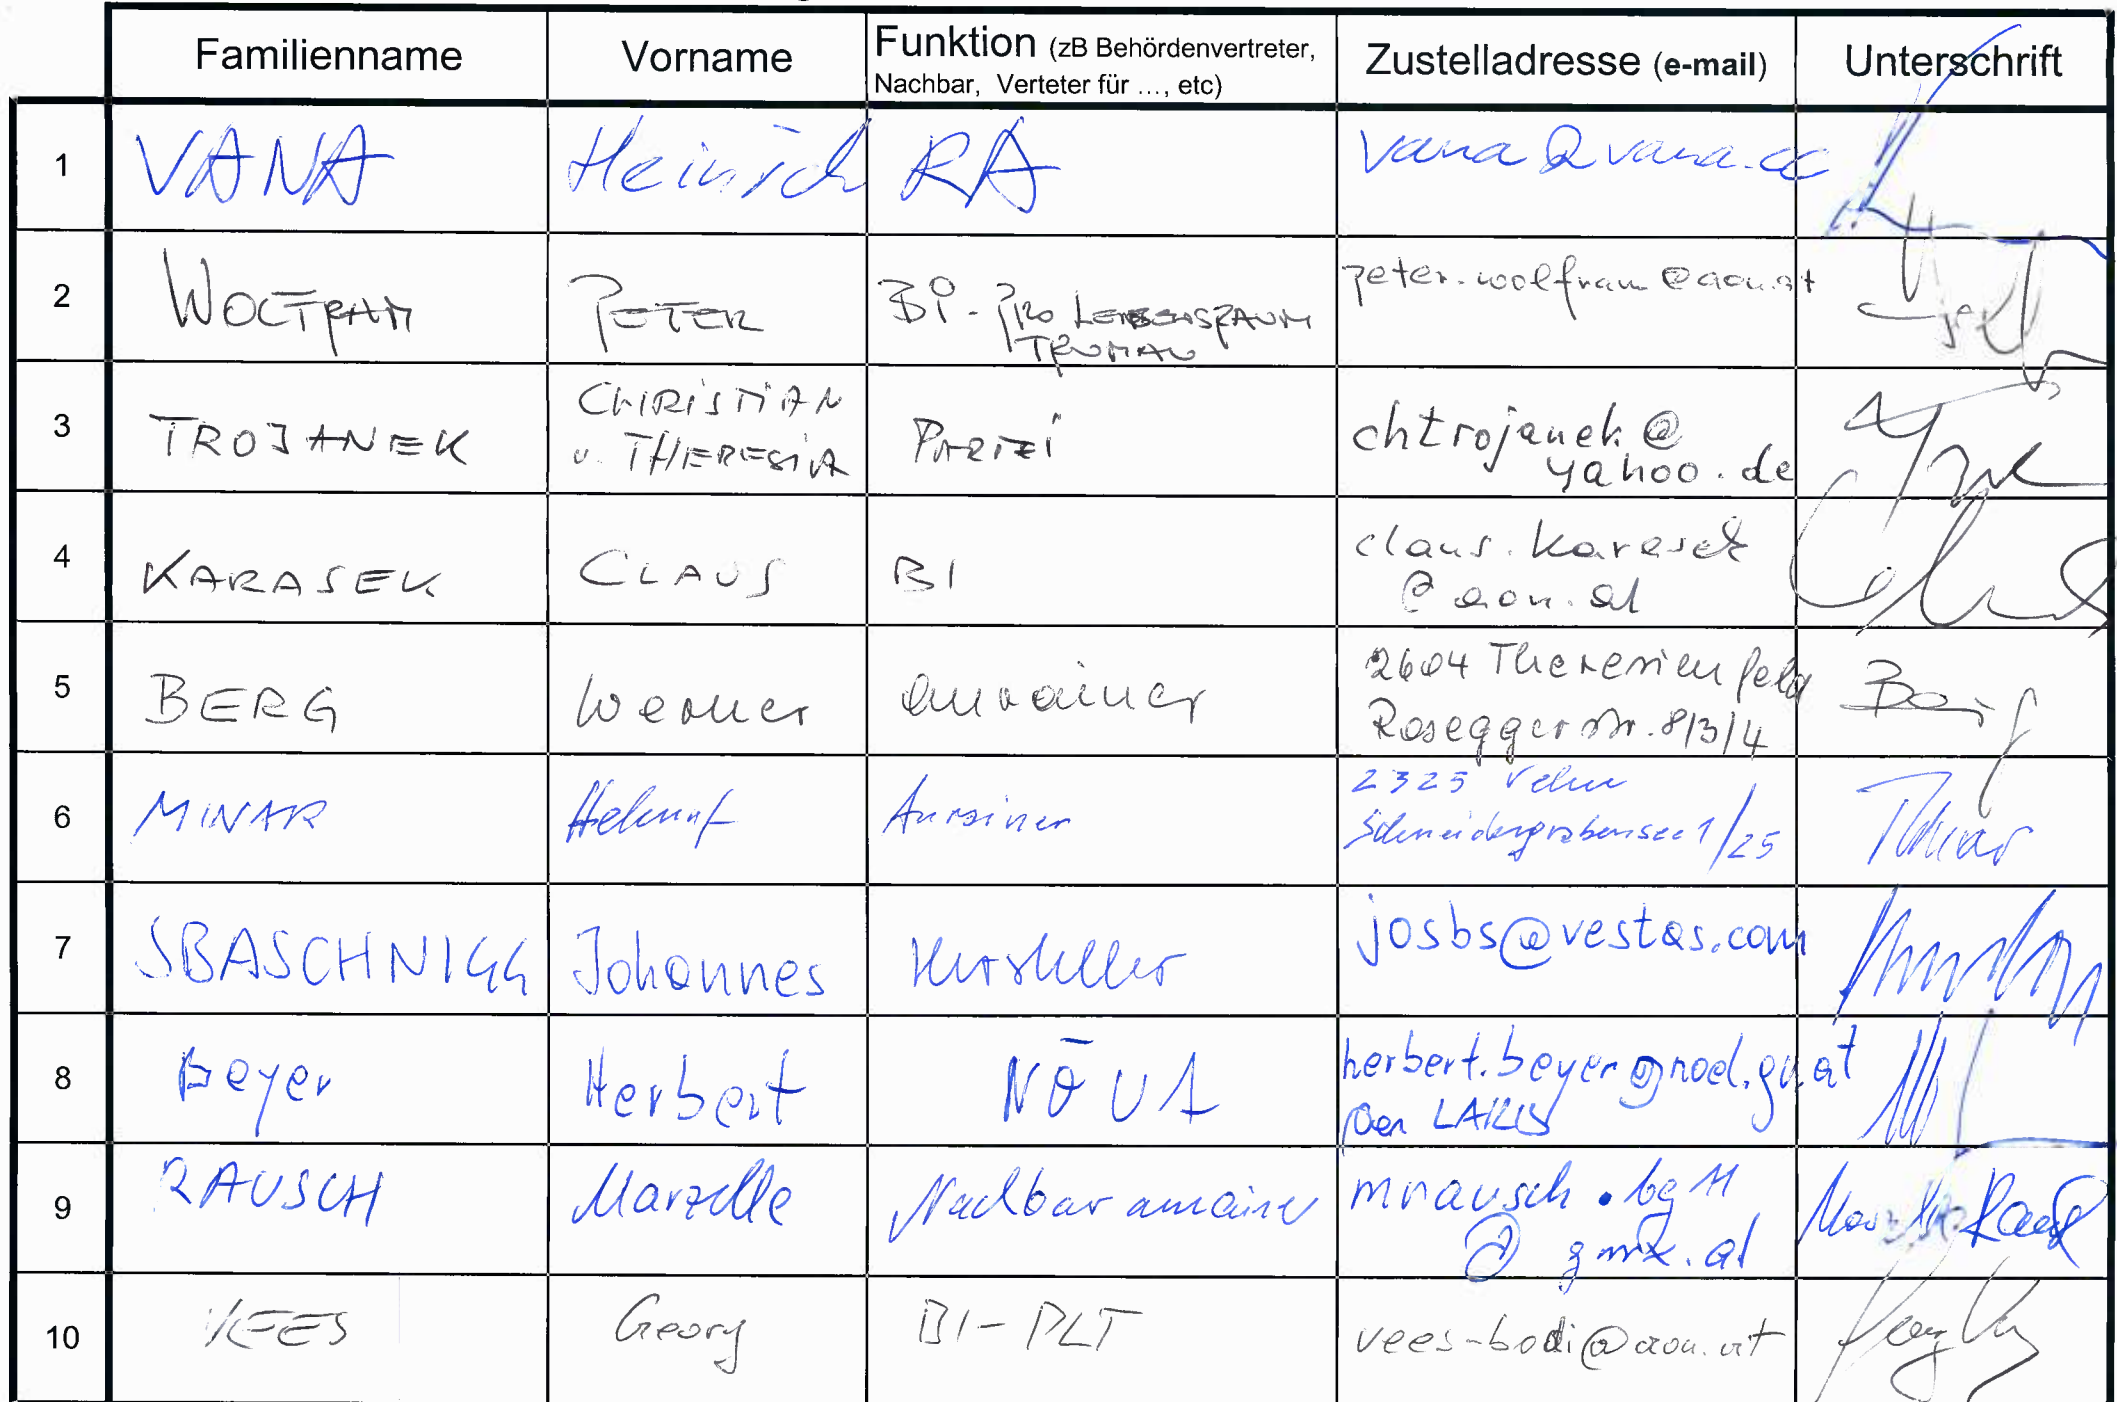 Familienname Vorname Funktion (zB Behördenvertreter, Nachbar, Verteter für ..., etc) Zustelladresse (e-mail) Unterschrift
1 VANA Heinrich RA vana@vana.cc
2 WOLFRAM PETER BI - PRO LEBENSRAUM TRUMAU peter.wolfram@aon.at
3 TROJANEK CHRISTIAN u. THERESIA PARTEI chtrojanek@ yahoo.de
4 KARASEK CLAUS BI claus.karasek @aon.at
5 BERG Werner Anrainer 2604 Theresienfeld Roseggerstr. 8/3/4 Berg
6 MINAR Helmut Anrainer 2325 Velm Schneidergrabensee 1/25 Minar
7 SBASCHNIGG Johannes Hersteller josbs@vestas.com
8 Beyer Herbert NÖ U1 herbert.beyer@noel.gv.at per LAKIS
9 RAUSCH Marzelle Nachbar anrainer mrausch.bg11 @ gmx.at
10 VEES Georg BI-PLT vees-bodi@aon.at